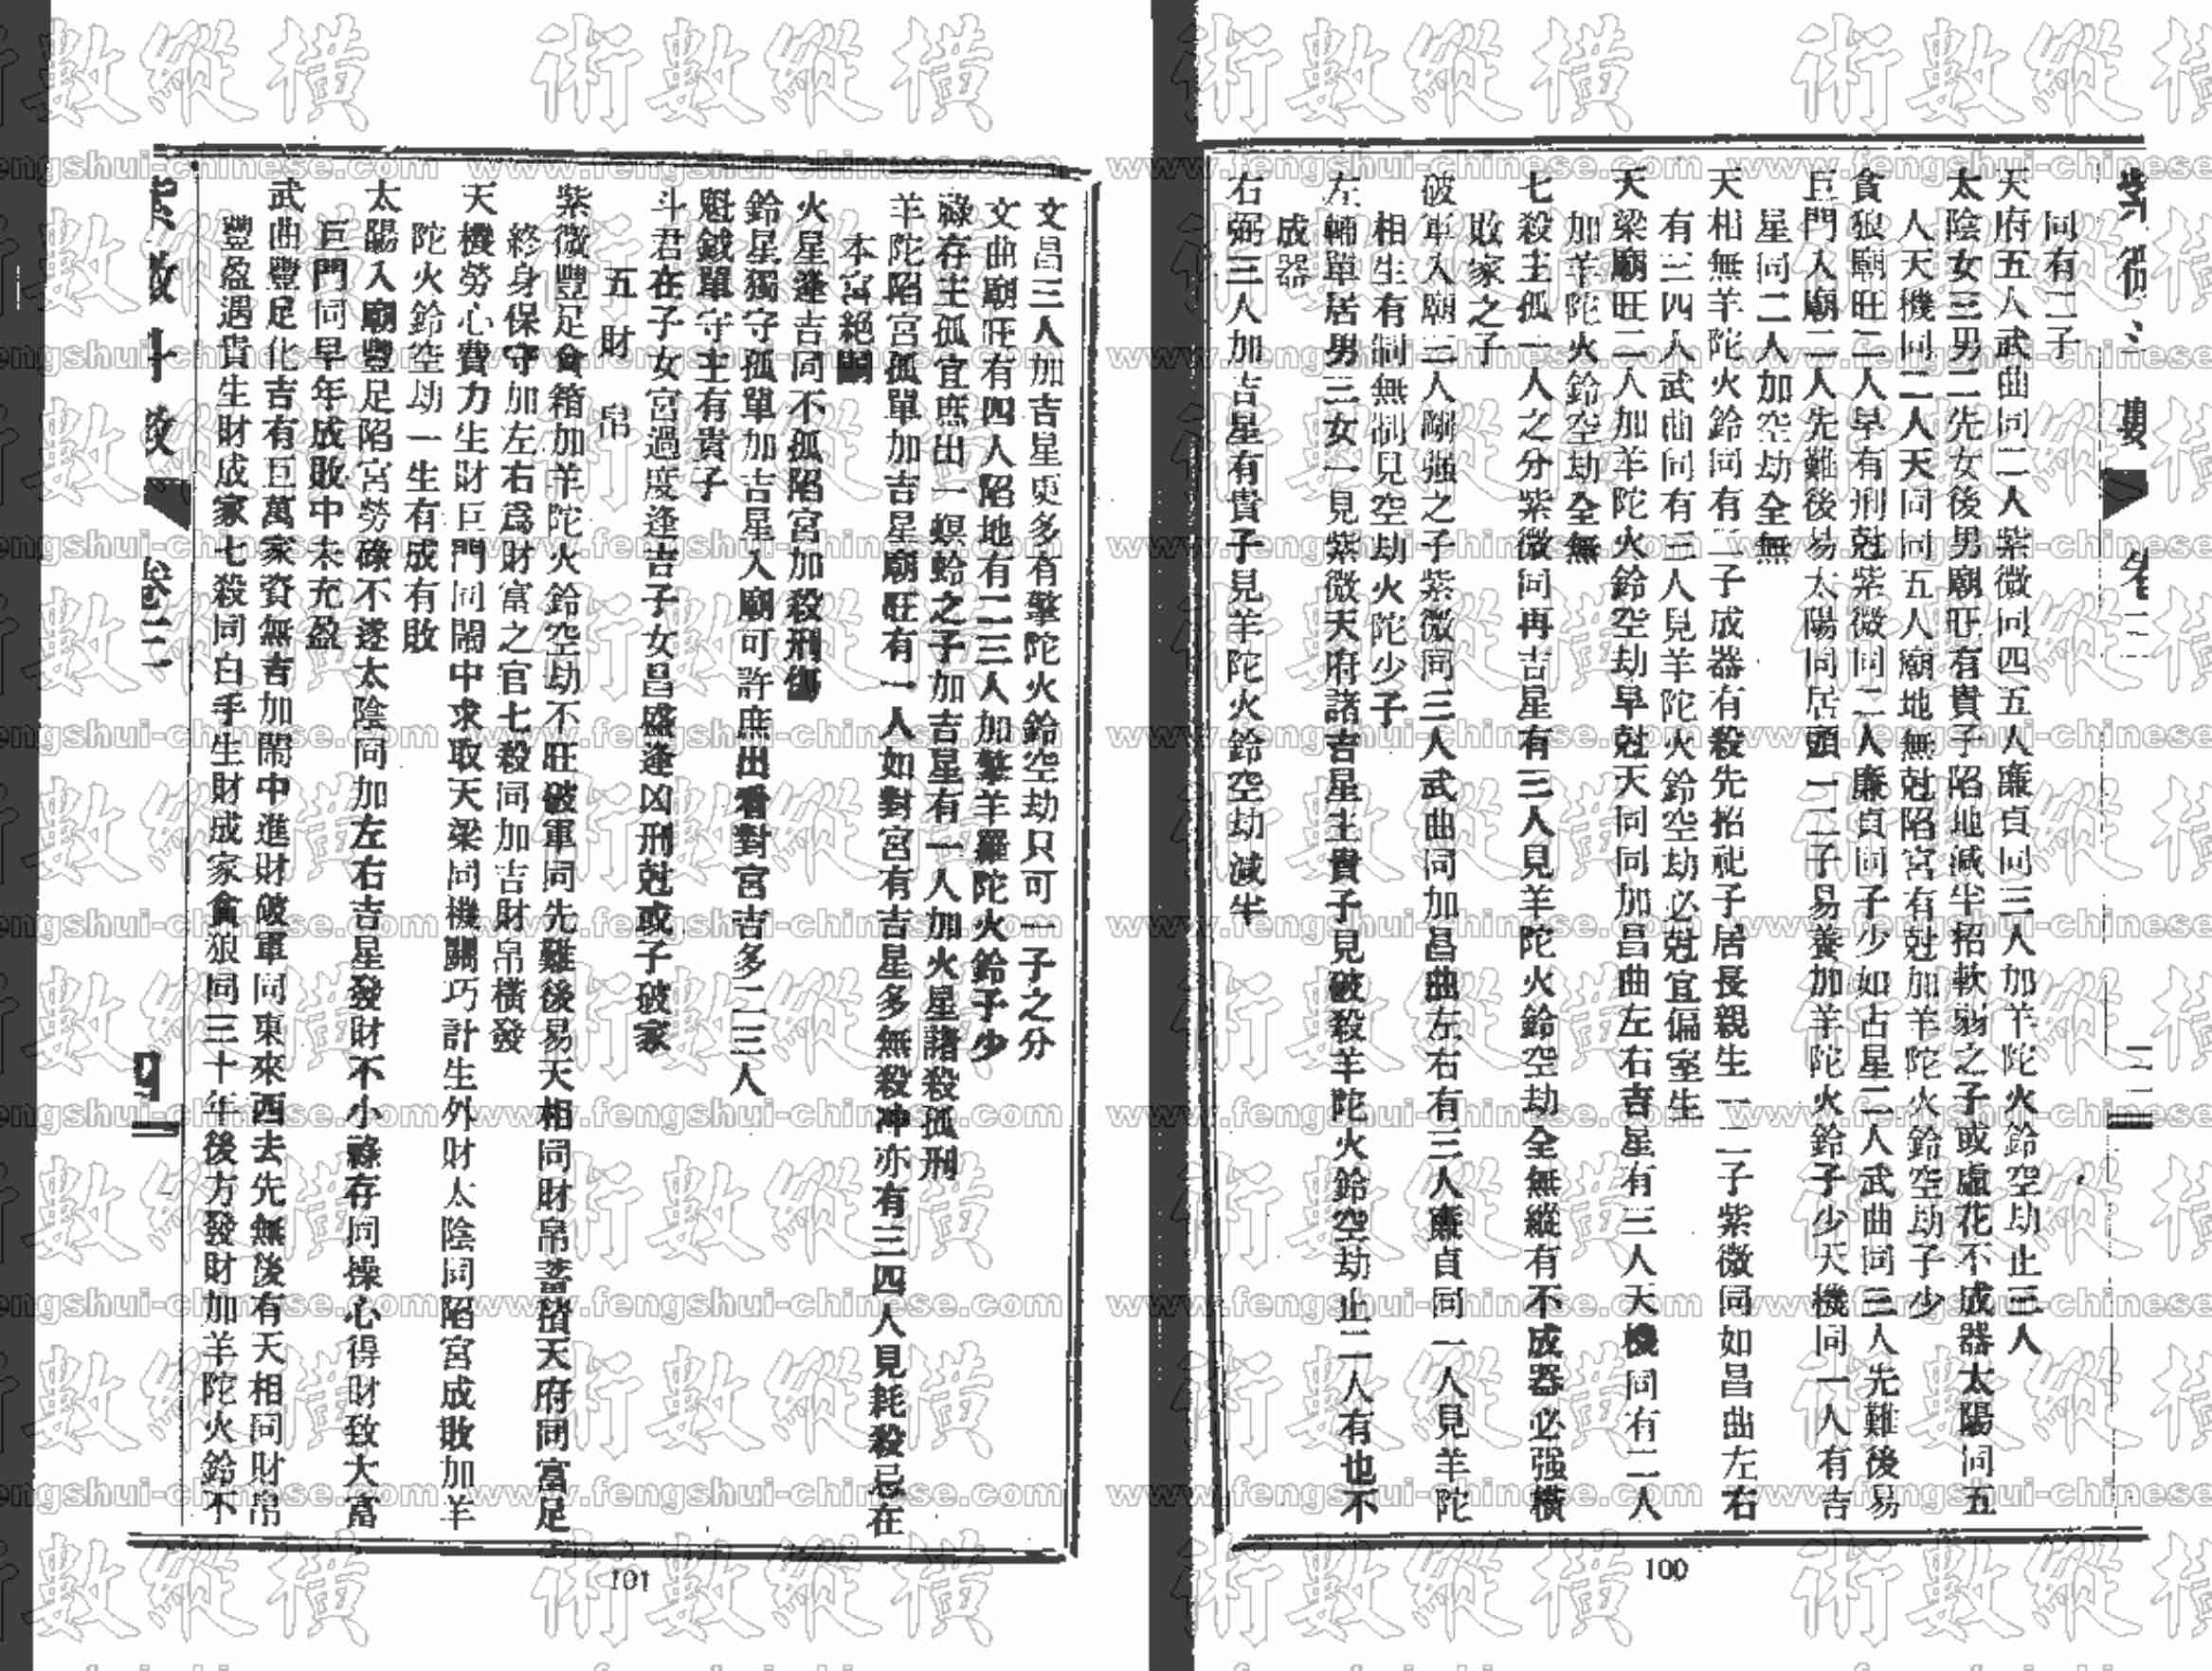 同有二子
天府五人武曲同二人紫微同四五人廉貞同三人加羊陀火鈴空劫止三人
太陰女三男二先女後男廟旺有貴子陷地減半招軟弱之子或虛花不成器太陽同五
人天機同二人天同同五人廟地無尅陷宮有尅加羊陀火鈴空劫子少
貪狼廟旺二人早有刑尅紫微同二人廉貞同子少如吉星二人武曲同三人先難後易
巨門入廟二人先難後易太陽同居頭一二子易養加羊陀火鈴子少天機同一人有吉
星同二人加空劫全無
天相無羊陀火鈴同有二子成器有殺先招祀子居長親生一二子紫微同如昌曲左右
有三四人武曲同有三人見羊陀火鈴空劫必尅宜偏室生
天梁廟旺二人加羊陀火鈴空劫早尅天同同加昌曲左右吉星有三人天機同有二人
加羊陀火鈴空劫全無
七殺主孤一人之分紫微同再吉星有三人見羊陀火鈴空劫全無縱有不成器必强橫
敗家之子
破軍入廟三人剛强之子紫微同三人武曲同加昌曲左右有三人廉貞同一人見羊陀
相生有制無制見空劫火陀少子
左輔單居男三女一見紫微天府諸吉星主貴子見破殺羊陀火鈴空劫止二人有也不
成器
右弼三人加吉星有貴子見羊陀火鈴空劫減半
100
文昌三人加吉星更多有擎陀火鈴空劫只可一子之分
文曲廟旺有四人陷地有二三人加擎羊羅陀火鈴子少
祿存主孤宜庶出一螟蛉之子加吉星有一人加火星諸殺孤刑
羊陀陷宮孤單加吉星廟旺有一人如對宮有吉星多無殺冲亦有三四人見耗殺忌在
本宮絕嗣
火星逢吉同不孤陷宮加殺刑傷
鈴星獨守孤單加吉星入廟可許庶出看對宮吉多二三人
魁鉞單守主有貴子
斗君在子女宮過度逢吉子女昌盛逢凶刑尅或子破家
五財帛
紫微豐足倉箱加羊陀火鈴空劫不旺破軍同先難後易天相同財帛蓄積天府同富足
終身保守加左右爲財富之官七殺同加吉財帛橫發
天機勞心費力生財巨門同鬧中求取天梁同機關巧計生外財太陰同陷宮成敗加羊
陀火鈴空劫一生有成有敗
太陽入廟豐足陷宮勞碌不遂太陰同加左右吉星發財不小祿存同操心得財致大富
巨門同早年成敗中未充盈
武曲豐足化吉有巨萬家資無吉加鬧中進財破軍同東來西去先無後有天相同財帛
豐盈遇貴生財成家七殺同白手生財成家貪狼同三十年後方發財加羊陀火鈴不
卷三
四
101
術數縱橫
www.fengshui-chinese.com